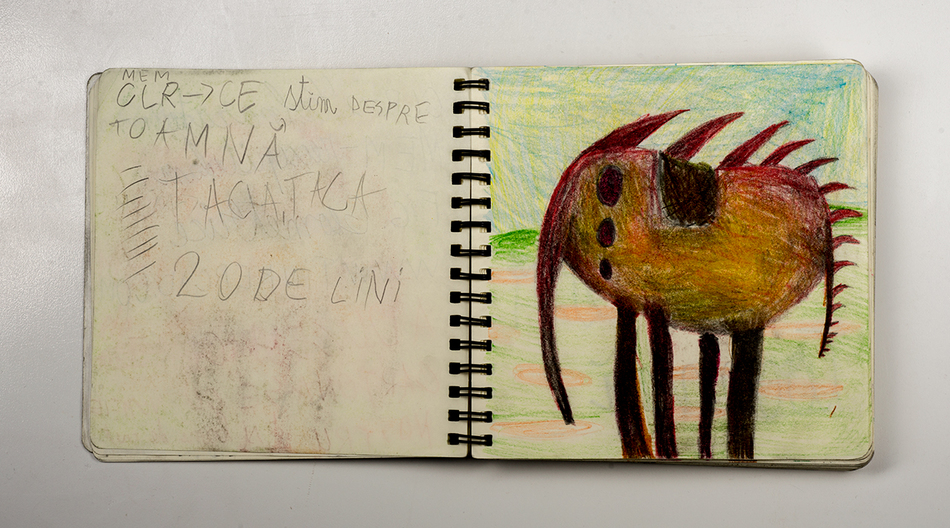 MEM
CLR→CE stim DESPRE
TOAMNĂ
20 DE LiNi